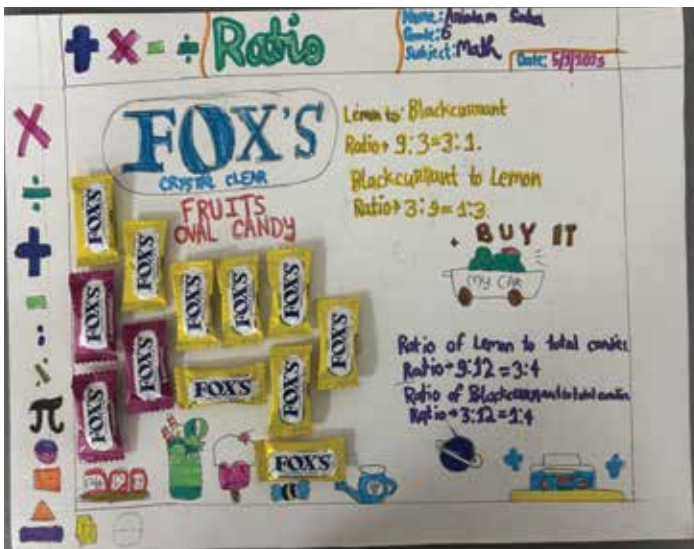 Ratio
Name: Arindam Saha
Grade: 6
Subject: Math
Date: 5/9/2023
FOX'S
CRYSTAL CLEAR
FRUITS
OVAL CANDY
Lemon to Blackcurrant
Ratio→ 9:3=3:1.
Blackcurrant to Lemon
Ratio→ 3:9=1:3
BUY IT
MY CAR
Ratio of Lemon to total candies
Ratio→ 9:12=3:4
Ratio of Blackcurrant to total candies
Ratio→ 3:12=1:4
FOX'S
FOX'S
FOX'S
FOX'S
FOX'S
FOX'S
FOX'S
FOX'S
FOX'S
FOX'S
FOX'S
FOX'S
π